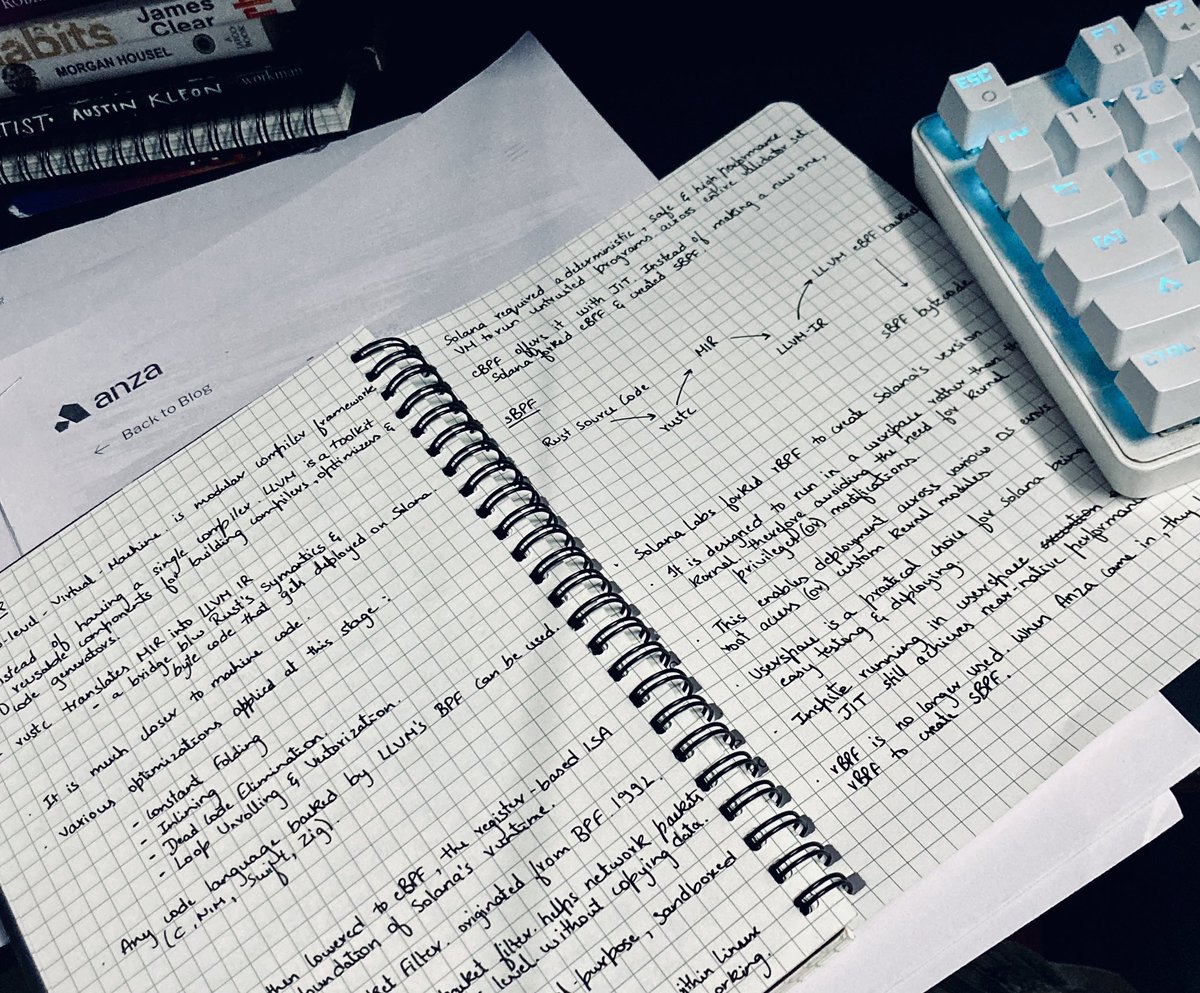 James
Clear
abits
MORGAN HOUSEL
TIST. AUSTIN KLEON workman
anza
← Back to Blog
-level-Virtual-Machine is modular compiler framework
Instead of having a single compiler LLVM is a toolkit
reusable components for building compilers, optimizers &
code generators.
rustc translates MIR into LLVM IR
- a bridge b/w Rust's Symantics &
byte code that gets deployed on Solana.
It is much closer to machine code.
various optimizations applied at this stage:
- Constant Folding
- Inlining
- Dead Code Elimination.
- Loop Unrolling & Vectorization.
Any code language backed by LLVM's BPF can be used.
(C, NIM, Swift, Zig).
then lowered to eBPF, the register-based ISA
oundation of Solana's runtime.
ket Filter. originated from BPF. 1992.
acket filter helps network packets
level without copying data.
l-purpose, sandboxed
within linux
working.
Solana required a deterministic, safe & high performance
VM to run untrusted programs across entire validator set
eBPF offers it with JIT. Instead of making a new one,
Solana forked eBPF & created sBPF
sBPF
Rust Source Code → rustc → MIR → LLVM-IR → LLVM eBPF backend
sBPF bytecode
. Solana Labs forked rBPF to create Solana's version
. It is designed to run in a userspace rather than the
Kernel, therefore avoiding the need for kernel
privileged (or) modifications.
. This enables deployment across various OS envs
root access (or) custom kernel modules
. Userspace is a practical choice for solana being
easy testing & deploying.
. Inspite running in userspace near-native performan
JIT still achieves
. rBPF is no longer used. when Anza came in, they
rBPF to create sBPF.
ESC
F1
F2
1 !
2 @
CTRL